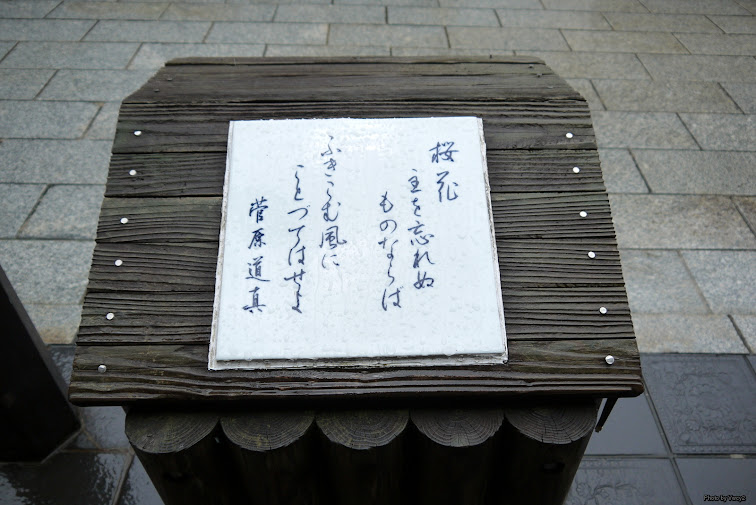 桜花
主を忘れぬ
ものならば
ふきこむ風に
ことづてはせよ
菅原道真
Photo by Vany2